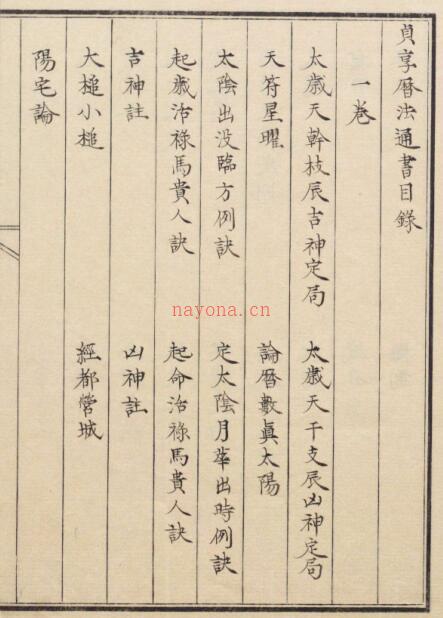 貞享曆法通書目錄
一卷
太歲天幹枝辰吉神定局 太歲天干支辰凶神定局
天符星曜 論曆數眞太陽
太陰出没臨方例訣 定太陰月華出時例訣
起歲活祿馬貴人訣 起命活祿馬貴人訣
吉神註 凶神註
大槌小槌 經都營城
陽宅論
nayona.cn